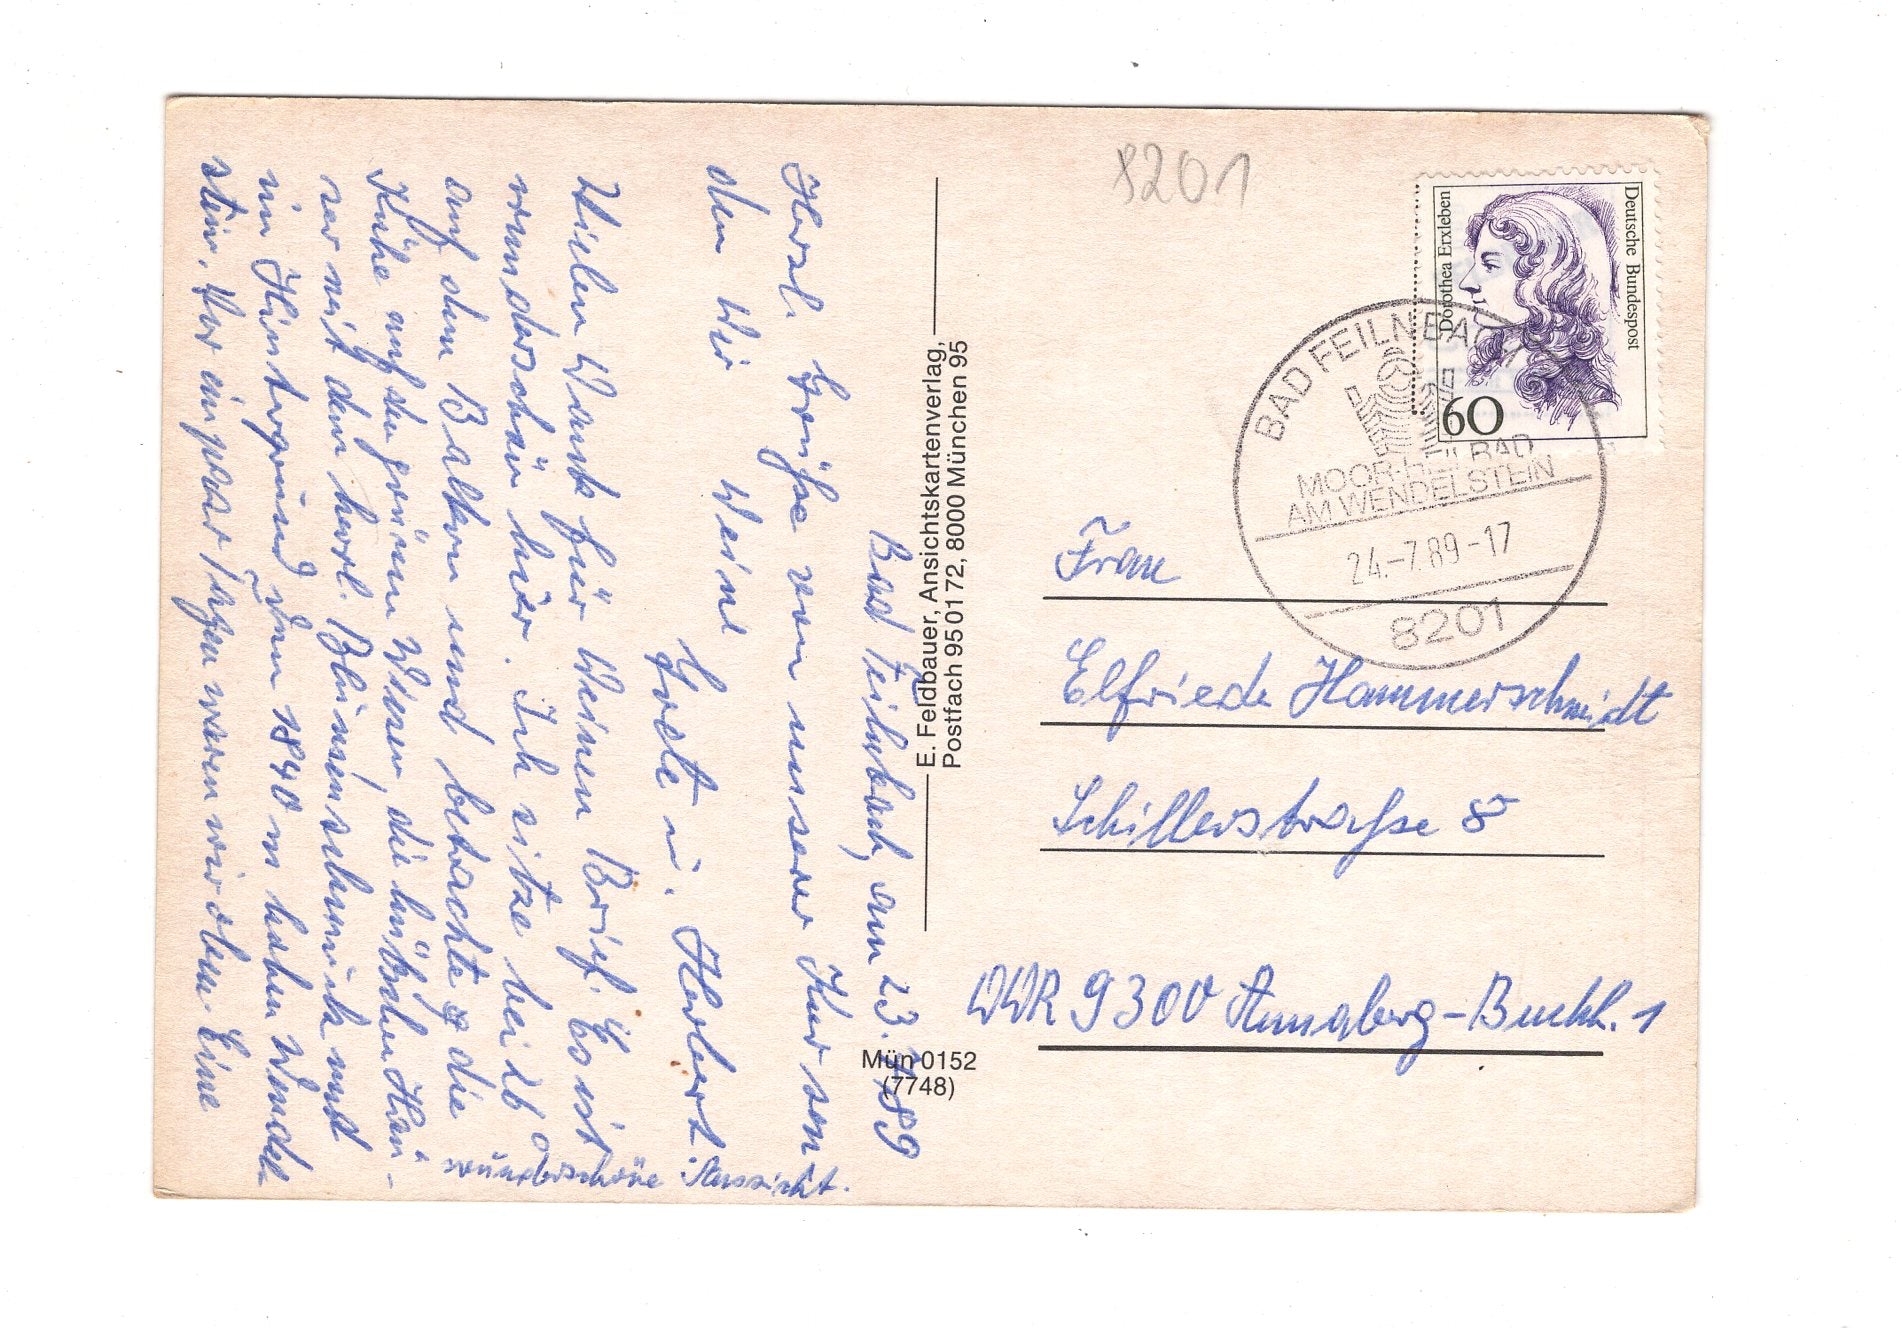 Bad Feilnbach, am 23.7.89
Herzl. Grüße von unserer Kur sen
den Dir Deine
Gretl u. Herbert.
Vielen Dank für Deinen Brief. Es ist
wunderschön hier. Ich sitze bei 26°
auf dem Balkon und betrachte die
Kühe auf den grünen Wiesen, die hübschen Häu-
ser mit dem herrl. Blumenschmuck und
im Hintergrund den 1840 m hohen Wendel
stein. Vor ein paar Tagen waren wir oben. Eine
wunderschöne Aussicht.
E. Feldbauer, Ansichtskartenverlag,
Postfach 95 01 72, 8000 München 95
Mün 0152
(7748)
8201
Deutsche Bundespost
Dorothea Erxleben
60
BAD FEILNBACH
MOOR-HEILBAD
AM WENDELSTEIN
24.-7.89-17
8201
Frau
Elfriede Hammerschmidt
Schillerstraße 8
DDR 9300 Annaberg-Buchh. 1